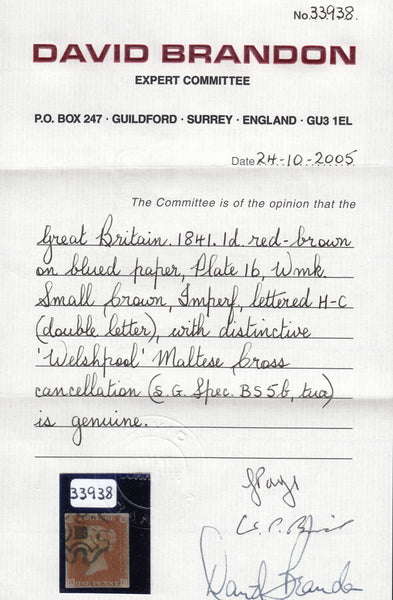 No. 33938.
DAVID BRANDON
EXPERT COMMITTEE
P.O. BOX 247 · GUILDFORD · SURREY · ENGLAND · GU3 1EL
Date 24-10-2005
The Committee is of the opinion that the
Great Britain. 1841. 1d. red-brown
on blued paper, Plate 16, Wmk.
Small Crown, Imperf, lettered H-C
(double letter), with distinctive
'Welshpool' Maltese Cross
cancellation (S.G. Spec. BS5b, tua)
is genuine.
33938
POSTAGE
ONE PENNY
David Brandon